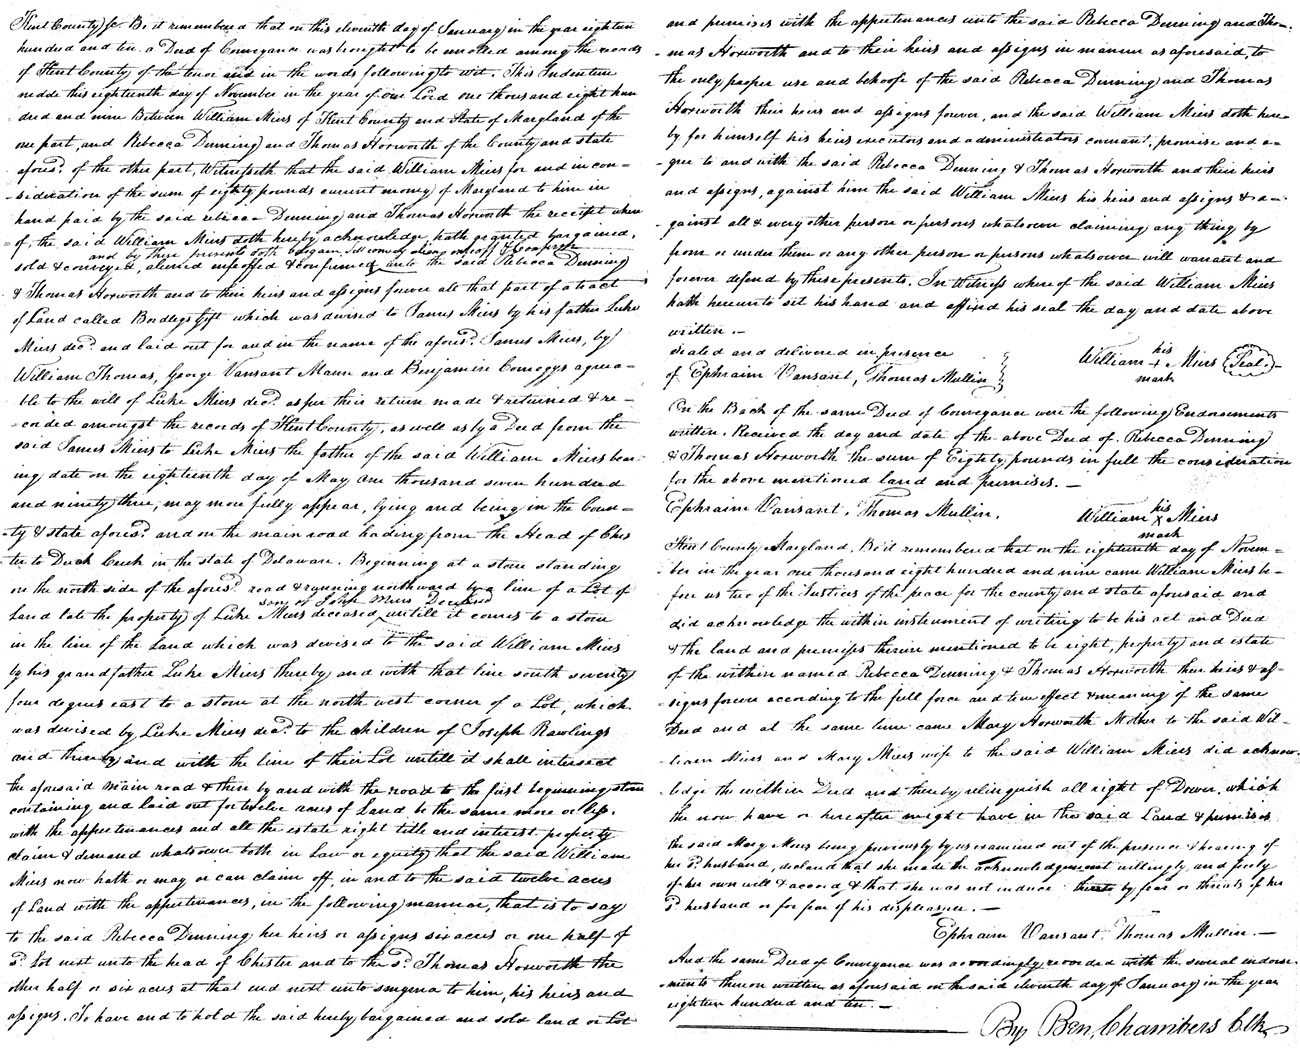 Kent County Sc Be it remembered that on this eleventh day of January in the year eighteen
hundred and ten a Deed of Conveyance was brought to be enrolled among the records
of Kent County of the tenor and in the words following to wit. This Indenture
made this eighteenth day of November in the year of our Lord one thousand eight hun
dred and nine Between William Miers of Kent County and State of Maryland of the
one part, and Rebecca Denning and Thomas Horworth of the County and state
afores.d of the other part, Witnesseth that the said William Miers for and in con=
=sideration of the sum of eighty pounds current money of Maryland to him in
hand paid by the said rebecca Denning and Thomas Horworth the receipt where
=of the said William Miers doth hereby acknowledge hath granted bargained,
and by these presents doth bargain sell convey alien enfeoff & Confirm
sold & conveyed, aliened enfeoffed & confirmed unto the said Rebecca Denning
& Thomas Horworth and to their heirs and assigns forever all that part of a tract
of Land called Bordleys Gift which was devised to James Miers by his father Luke
Miers dec.d and laid out for and in the name of the afores.d James Miers, by
William Thomas, George Vansant Mann and Benjamin Comegys agrea=
ble to the will of Luke Miers dec.d as per their return made & returned & re=
=corded amongst the records of Kent County, as well as by a Deed from the
said James Miers to Luke Miers the father of the said William Miers bear=
ing date on the eighteenth day of May one thousand seven hundred
and ninety three, may more fully appear, lying and being in the Coun=
=ty & state afores.d and on the main road leading from the Head of Ches
ter to Duck Creek in the state of Delaware. Beginning at a stone standing
on the north side of the afores.d road & running northward by a line of a Lot of
son of Luke Miers Deceased
Land late the property of Luke Miers deceased untill it comes to a stone
in the line of the Land which was devised to the said William Miers
by his grandfather Luke Miers thereby and with that line south seventy
four degrees east to a stone at the north west corner of a Lot, which
was devised by Luke Miers dec.d to the children of Joseph Rawlings
and thereby and with the line of their Lot untill it shall intersect
the aforesaid main road & there by and with the road to the first beginning stone
containing and laid out for twelve acres of Land be the same more or less.
with the appertenances and all the estate right title and interest property
claim & demand whatsoever both in Law or equity that the said William
Miers now hath or may or can claim off, in and to the said twelve acres
of Land with the appertenances, in the following manner, that is to say
to the said Rebecca Denning her heirs or assigns six acres or one half of
s.d Lot next unto the head of Chester and to the s.d Thomas Horworth the
other half or six acres at that end next unto smyrna to him, his heirs and
assigns. To have and to hold the said hereby bargained and sold land or Lot
and premises with the appertenances unto the said Rebecca Denning and Tho=
mas Horworth and to their heirs and assigns in manner as aforesaid, to
the only proper use and behoofe of the said Rebecca Denning and Thomas
Horworth their heirs and assigns forever, and the said William Miers doth here=
by for himself his heirs executors and administrators covenant, promise and a=
gree to and with the said Rebecca Denning & Thomas Horworth and their heirs
and assigns, against him the said William Miers his heirs and assigns & a=
gainst all & every other person or persons whatsoever claiming any thing by
from or under them or any other person or persons whatsoever will warrant and
forever defend by these presents. In Witness where of the said William Miers
hath hereunto set his hand and affixed his seal the day and date above
written.—
sealed and delivered in presence
of Ephraim Vansant, Thomas Mullin
his
William + Miers Seal.
mark
On the Back of the same Deed of Conveyance were the following Endorsements
written. Received the day and date of the above Deed of Rebecca Denning
& Thomas Horworth the sum of Eighty pounds in full the consideration
for the above mentioned land and premises.—
Ephraim Vansant, Thomas Mullin.
his
William x Miers
mark
Kent County Maryland, Be it remembered that on the eighteenth day of Novem=
ber in the year one thousand eight hundred and nine came William Miers be=
fore us two of the Justices of the peace for the county and state aforesaid and
did acknowledge the within instrument of writing to be his act and Deed
& the land and premises therein mentioned to be right, property and estate
of the within named Rebecca Denning & Thomas Horworth their heirs & as=
signs forever according to the full force and true effect & meaning of the same
Deed and at the same time came Mary Horworth Mother to the said Wil=
liam Miers and Mary Miers wife to the said William Miers did acknow
ledge the within Deed and thereby relinquish all right of Dower, which
the now have or hereafter might have in the said Land & premises
the said Mary Miers being previously by us examined out of the presence & hearing of
her s.d husband, declared that she made the acknowledgement willingly and freely
of her own will & accord & that she was not induce thereto by fear or threats of her
s.d husband or for fear of his displeasure.—
Ephraim Vansant, Thomas Mullin.—
And the same Deed of Conveyance was accordingly recorded with the several endorse=
=ments thereon written as aforesaid on the said eleventh day of January in the year
eighteen hundred and ten.—
By Ben, Chambers Clk